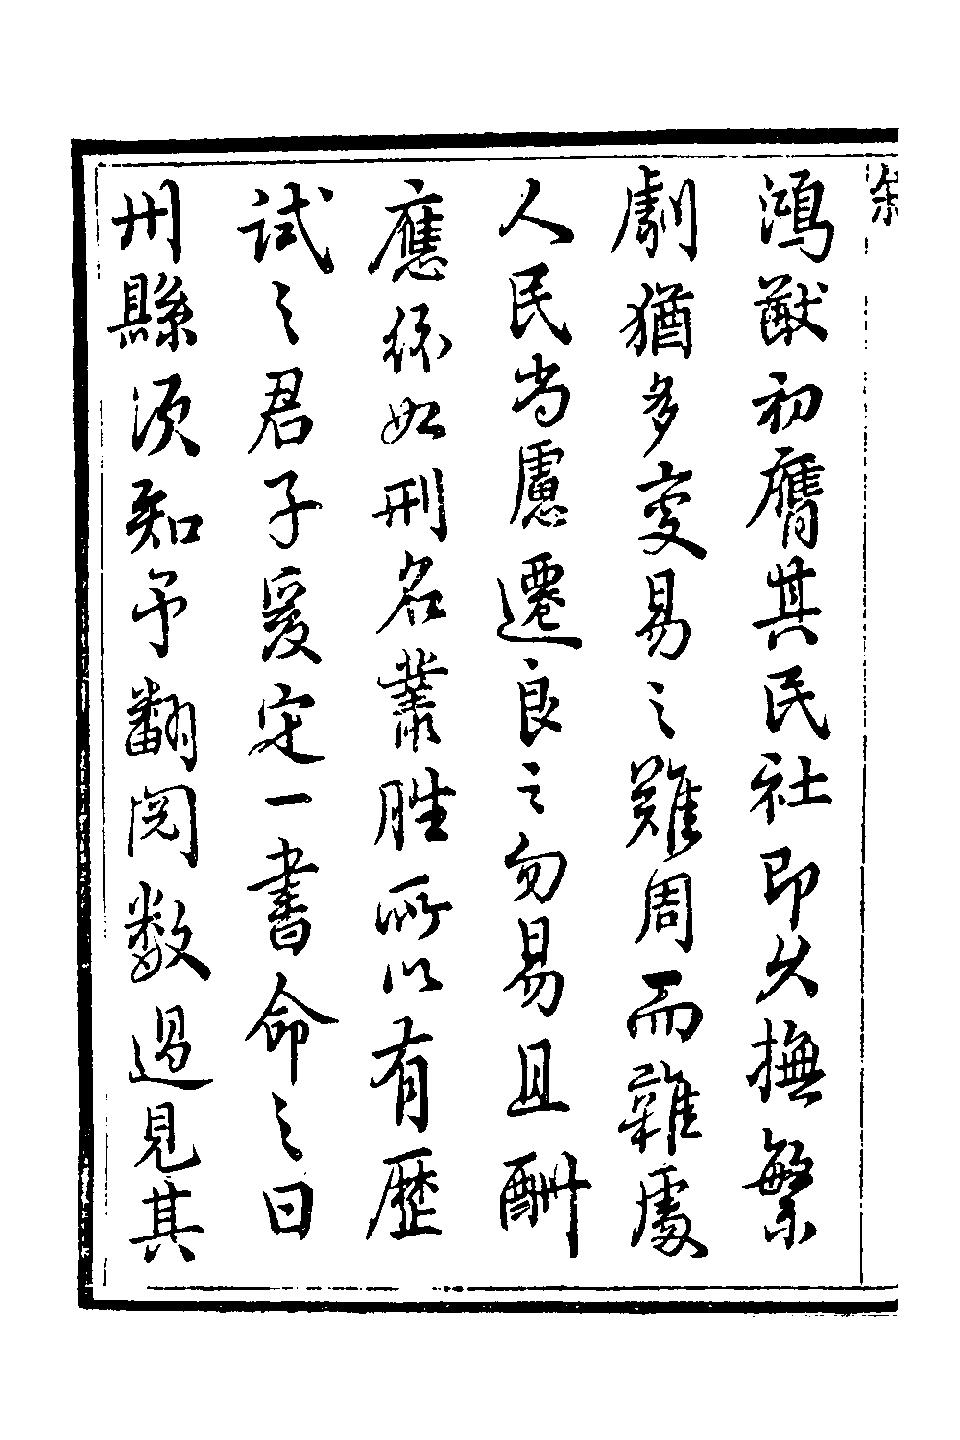 鴻猷初膺其民社即久撫繁
劇猶多變易之難周而雜處
人民尚慮遷良之勿易且酬
應係如刑名叢脞所以有歷
試之君子爰定一書命之曰
州縣須知予翻閱數過見其